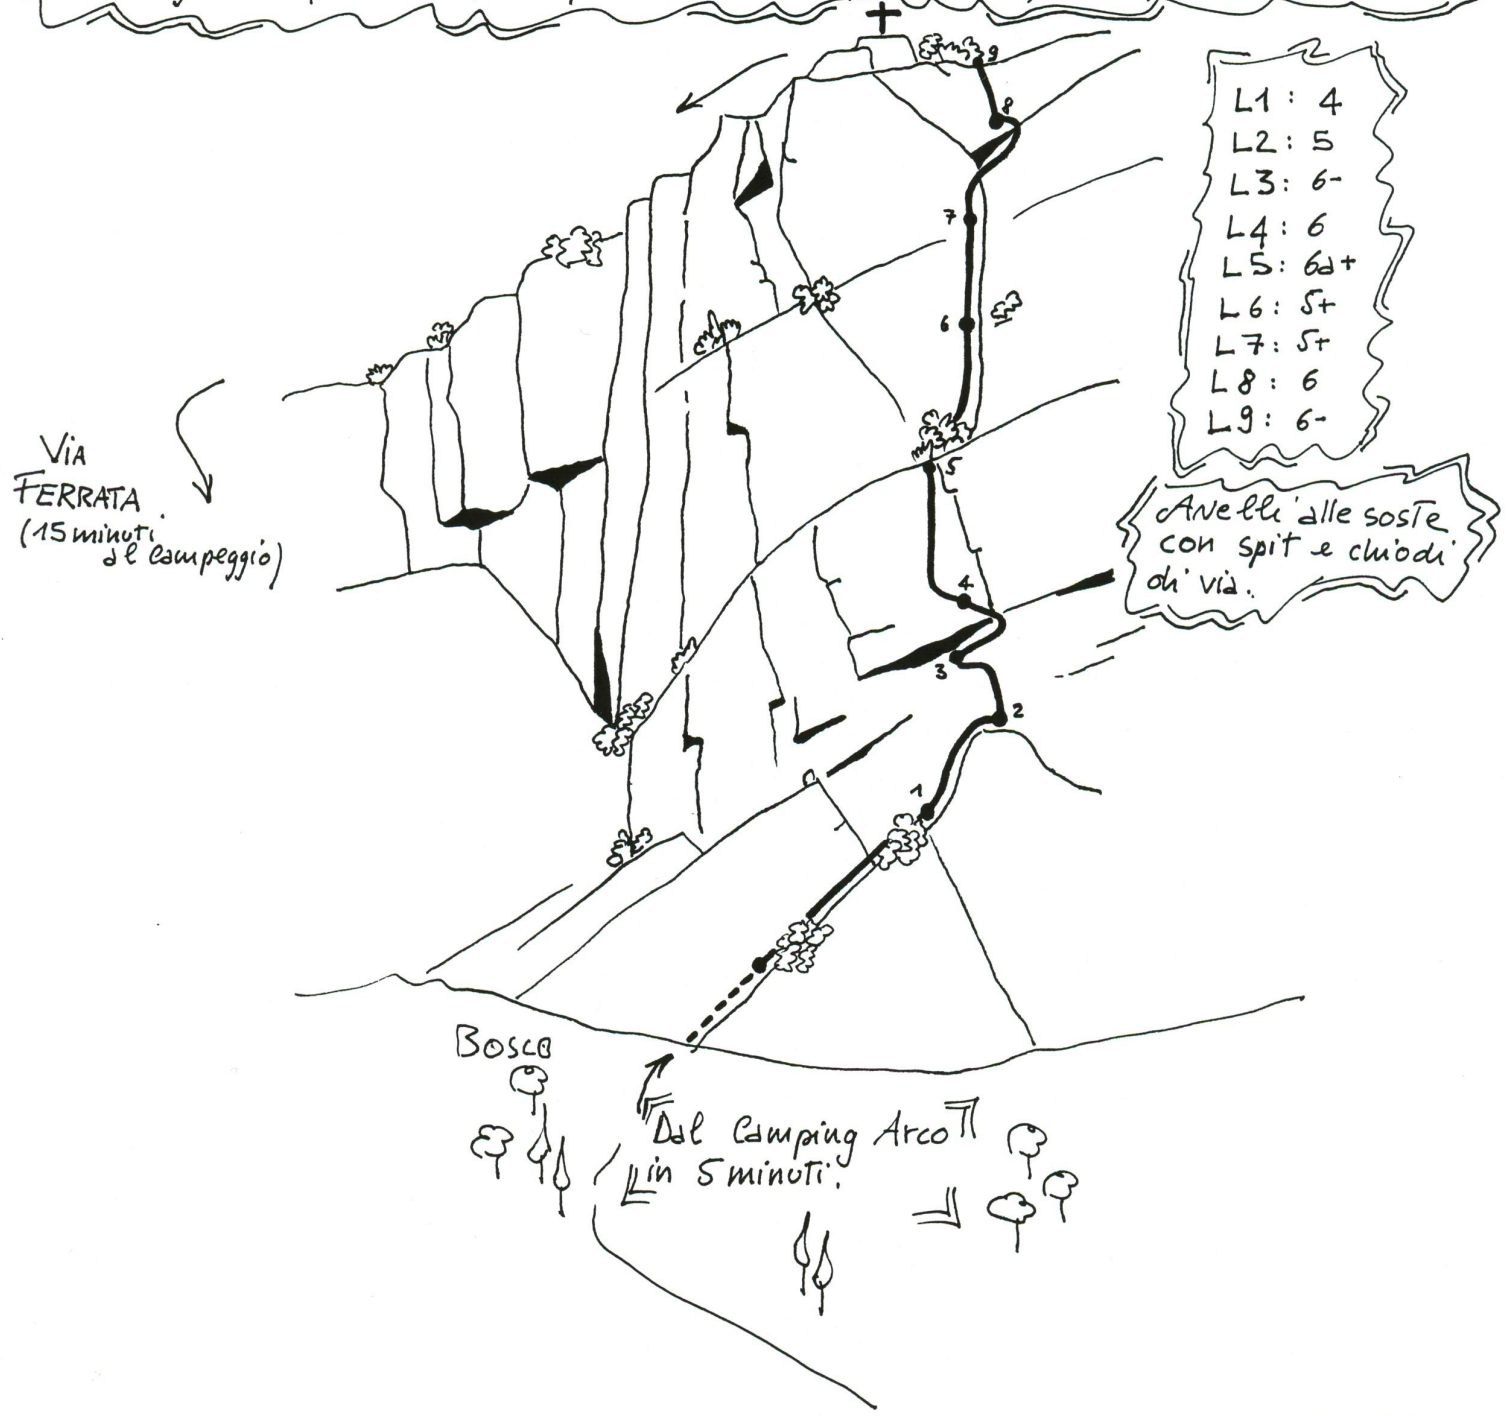 9
8
7
6
5
4
3
2
1
L1: 4
L2: 5
L3: 6-
L4: 6
L5: 6a+
L6: 5+
L7: 5+
L8: 6
L9: 6-
Anelli alle soste
con spit e chiodi
di via.
VIA
FERRATA
(15 minuti
al campeggio)
Bosco
Dal Camping Arco
in 5 minuti.